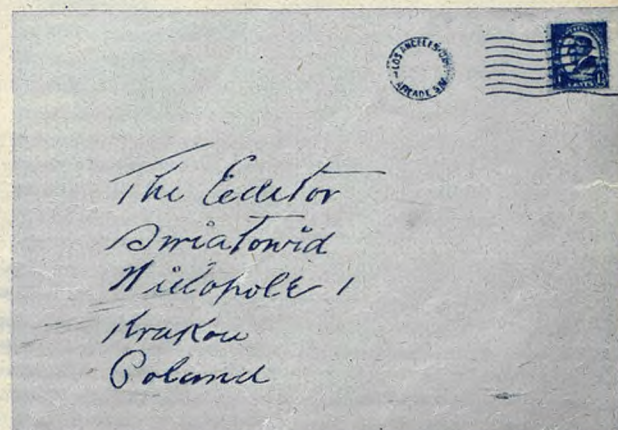 LOS ANGELES
ARCADE STA.
The Eeditor
Swiatowid
Wielopole 1
Krakow
Poland